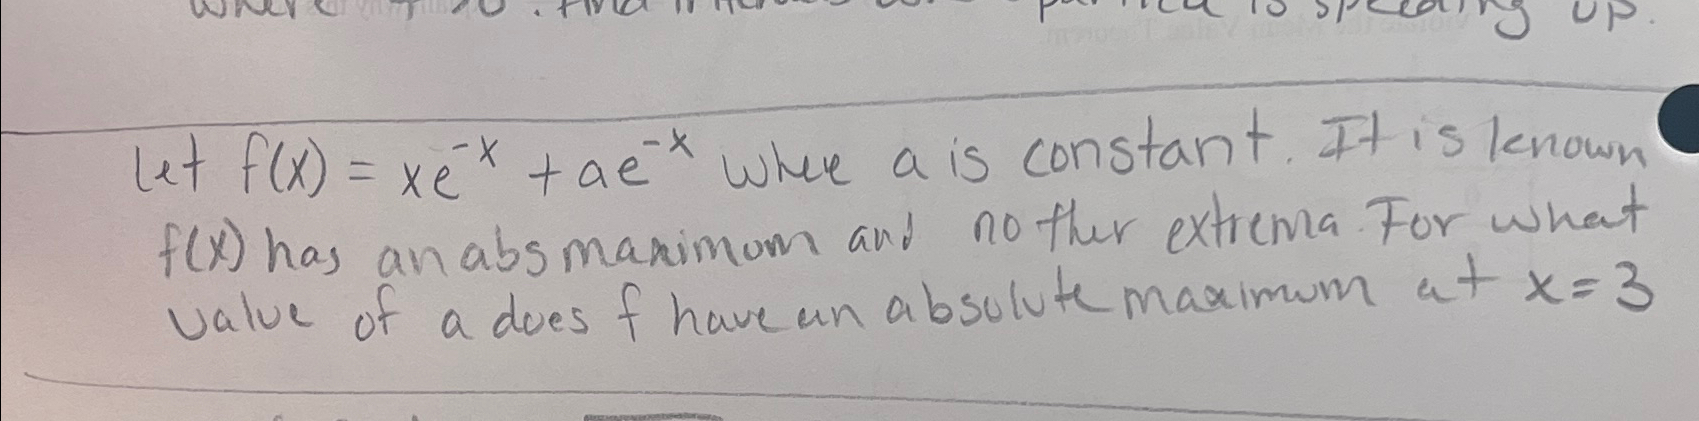 is speeding up.
let f(x) = xe^-x + ae^-x where a is constant. It is known
f(x) has an abs maximum and no ther extrema. For what
value of a does f have an absolute maximum at x=3